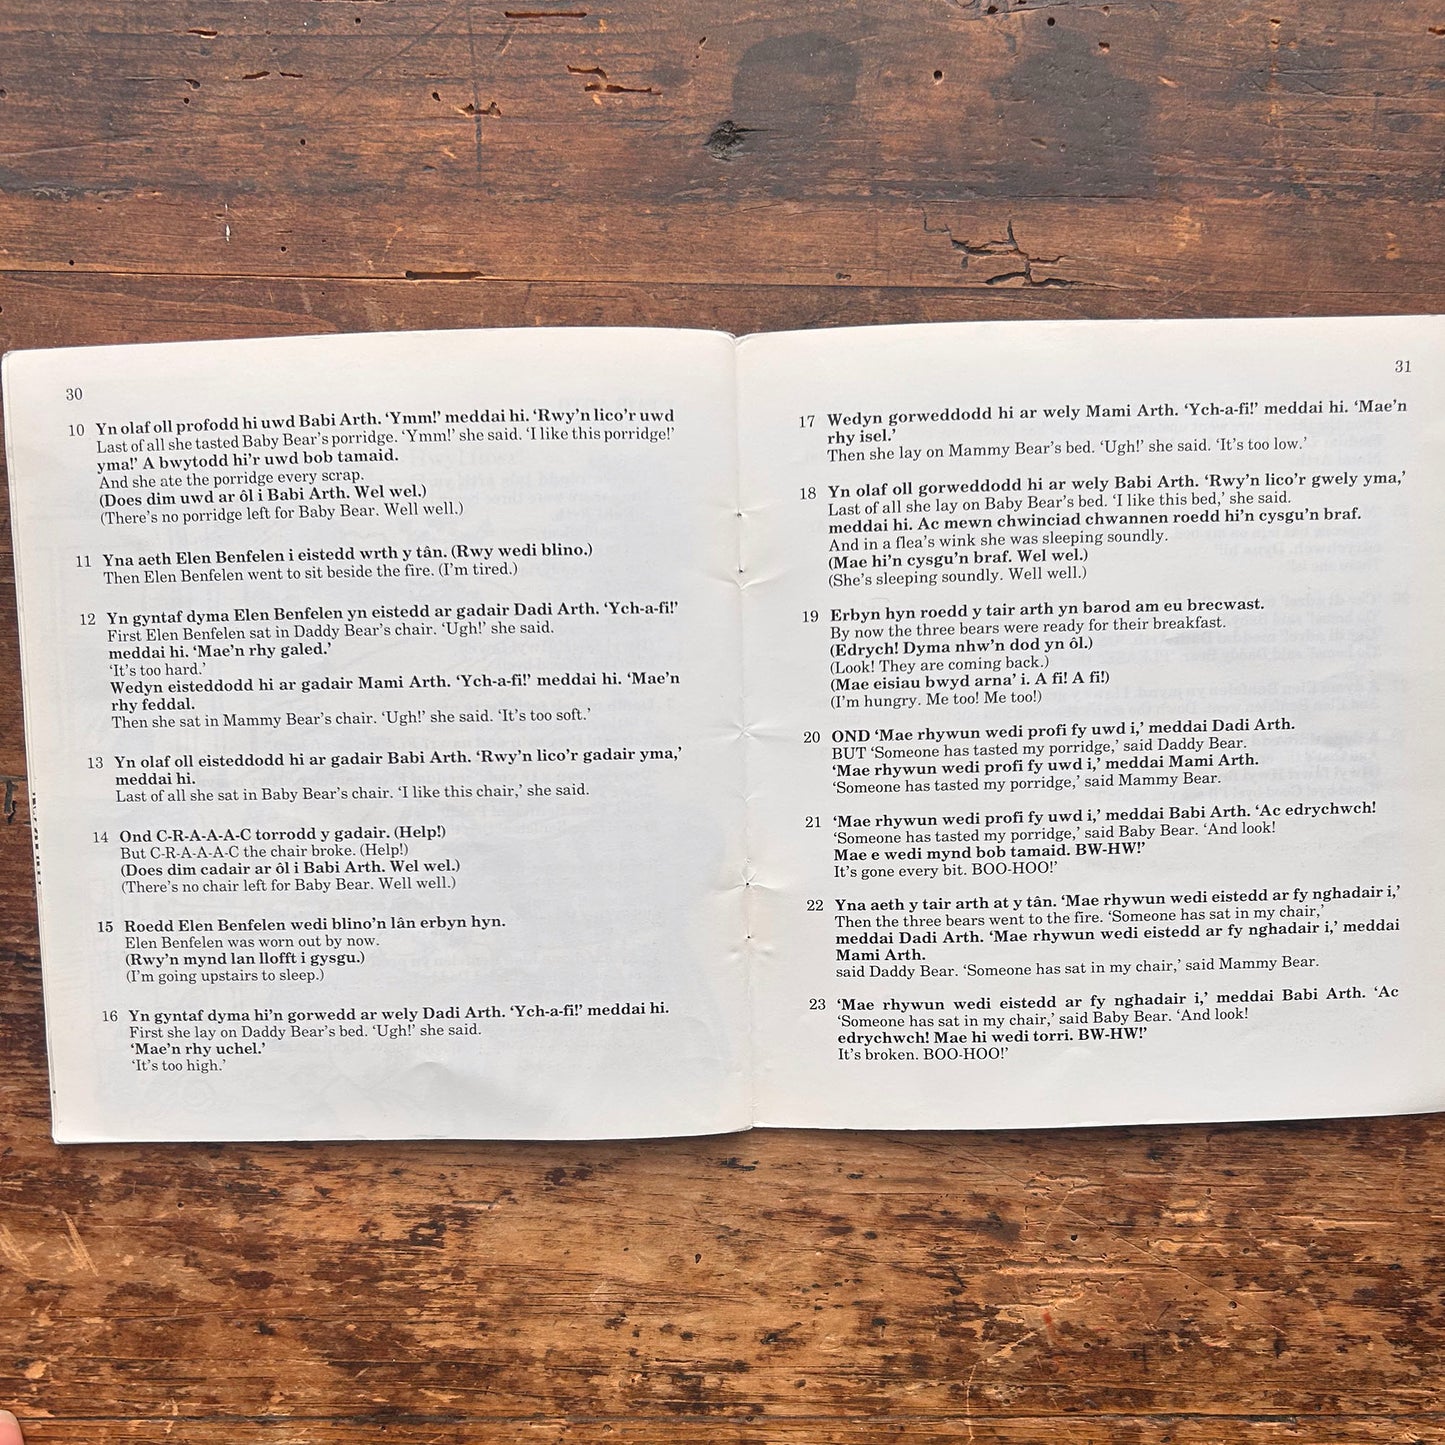 30
10 Yn olaf oll profodd hi uwd Babi Arth. ‘Ymm!’ meddai hi. ‘Rwy’n lico’r uwd
Last of all she tasted Baby Bear’s porridge. ‘Ymm!’ she said. ‘I like this porridge!’
yma!’ A bwytodd hi’r uwd bob tamaid.
And she ate the porridge every scrap.
(Does dim uwd ar ôl i Babi Arth. Wel wel.)
(There’s no porridge left for Baby Bear. Well well.)
11 Yna aeth Elen Benfelen i eistedd wrth y tân. (Rwy wedi blino.)
Then Elen Benfelen went to sit beside the fire. (I’m tired.)
12 Yn gyntaf dyma Elen Benfelen yn eistedd ar gadair Dadi Arth. ‘Ych-a-fi!’
First Elen Benfelen sat in Daddy Bear’s chair. ‘Ugh!’ she said.
meddai hi. ‘Mae’n rhy galed.’
‘It’s too hard.’
Wedyn eisteddodd hi ar gadair Mami Arth. ‘Ych-a-fi!’ meddai hi. ‘Mae’n
rhy feddal.
Then she sat in Mammy Bear’s chair. ‘Ugh!’ she said. ‘It’s too soft.’
13 Yn olaf oll eisteddodd hi ar gadair Babi Arth. ‘Rwy’n lico’r gadair yma,’
meddai hi.
Last of all she sat in Baby Bear’s chair. ‘I like this chair,’ she said.
14 Ond C-R-A-A-A-C torrodd y gadair. (Help!)
But C-R-A-A-A-C the chair broke. (Help!)
(Does dim cadair ar ôl i Babi Arth. Wel wel.)
(There’s no chair left for Baby Bear. Well well.)
15 Roedd Elen Benfelen wedi blino’n lân erbyn hyn.
Elen Benfelen was worn out by now.
(Rwy’n mynd lan llofft i gysgu.)
(I’m going upstairs to sleep.)
16 Yn gyntaf dyma hi’n gorwedd ar wely Dadi Arth. ‘Ych-a-fi!’ meddai hi.
First she lay on Daddy Bear’s bed. ‘Ugh!’ she said.
‘Mae’n rhy uchel.’
‘It’s too high.’
31
17 Wedyn gorweddodd hi ar wely Mami Arth. ‘Ych-a-fi!’ meddai hi. ‘Mae’n
rhy isel.’
Then she lay on Mammy Bear’s bed. ‘Ugh!’ she said. ‘It’s too low.’
18 Yn olaf oll gorweddodd hi ar wely Babi Arth. ‘Rwy’n lico’r gwely yma,’
Last of all she lay on Baby Bear’s bed. ‘I like this bed,’ she said.
meddai hi. Ac mewn chwinciad chwannen roedd hi’n cysgu’n braf.
And in a flea’s wink she was sleeping soundly.
(Mae hi’n cysgu’n braf. Wel wel.)
(She’s sleeping soundly. Well well.)
19 Erbyn hyn roedd y tair arth yn barod am eu brecwast.
By now the three bears were ready for their breakfast.
(Edrych! Dyma nhw’n dod yn ôl.)
(Look! They are coming back.)
(Mae eisiau bwyd arna’ i. A fi! A fi!)
(I’m hungry. Me too! Me too!)
20 OND ‘Mae rhywun wedi profi fy uwd i,’ meddai Dadi Arth.
BUT ‘Someone has tasted my porridge,’ said Daddy Bear.
‘Mae rhywun wedi profi fy uwd i,’ meddai Mami Arth.
‘Someone has tasted my porridge,’ said Mammy Bear.
21 ‘Mae rhywun wedi profi fy uwd i,’ meddai Babi Arth. ‘Ac edrychwch!
‘Someone has tasted my porridge,’ said Baby Bear. ‘And look!
Mae e wedi mynd bob tamaid. BW-HW!’
It’s gone every bit. BOO-HOO!’
22 Yna aeth y tair arth at y tân. ‘Mae rhywun wedi eistedd ar fy nghadair i,’
Then the three bears went to the fire. ‘Someone has sat in my chair,’
meddai Dadi Arth. ‘Mae rhywun wedi eistedd ar fy nghadair i,’ meddai
Mami Arth.
said Daddy Bear. ‘Someone has sat in my chair,’ said Mammy Bear.
23 ‘Mae rhywun wedi eistedd ar fy nghadair i,’ meddai Babi Arth. ‘Ac
‘Someone has sat in my chair,’ said Baby Bear. ‘And look!
edrychwch! Mae hi wedi torri. BW-HW!’
It’s broken. BOO-HOO!’